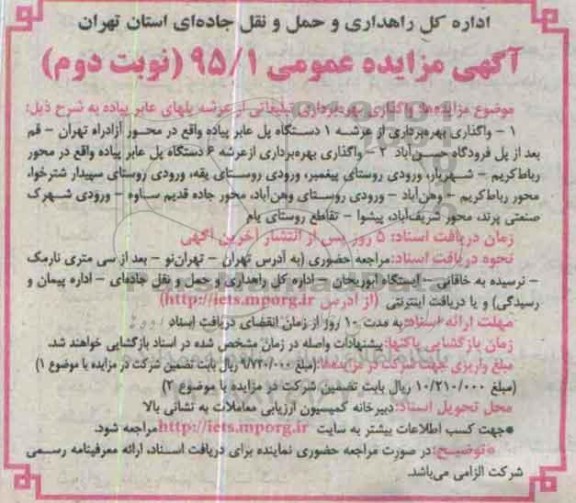 اداره کل راهداری و حمل و نقل جاده‌ای استان تهران
آگهی مزایده عمومی ۹۵/۱ (نوبت دوم)
موضوع مزایده‌ها: واگذاری بهره‌برداری تبلیغاتی از عرشه پلهای عابر پیاده به شرح ذیل:
۱ - واگذاری بهره‌برداری از عرشه ۱ دستگاه پل عابر پیاده واقع در محور آزادراه تهران - قم
بعد از پل فرودگاه حسن‌آباد ۲ - واگذاری بهره‌برداری ازعرشه ۶ دستگاه پل عابر پیاده واقع در محور
رباط‌کریم - شهریار، ورودی روستای پیغمبر، ورودی روستای یقه، ورودی روستای سپیدار شترخوا،
محور رباط‌کریم - وهن‌آباد - ورودی روستای وهن‌آباد، محور جاده قدیم ساوه - ورودی شهرک
صنعتی پرند، محور شریف‌آباد، پیشوا - تقاطع روستای یام
زمان دریافت اسناد: ۵ روز پس از انتشار آخرین آگهی
نحوه دریافت اسناد: مراجعه حضوری (به آدرس تهران - تهران‌نو - بعد از سی متری نارمک
- نرسیده به خاقانی - ایستگاه ابوریحان - اداره کل راهداری و حمل و نقل جاده‌ای - اداره پیمان و
رسیدگی) و یا دریافت اینترنتی (از آدرس http://iets.mporg.ir)
مهلت ارائه اسناد: به مدت ۱۰ روز از زمان انقضای دریافت اسناد
زمان بازگشایی پاکتها: پیشنهادات واصله در زمان مشخص شده در اسناد بازگشایی خواهند شد.
مبلغ واریزی جهت شرکت در مزایده‌ها: (مبلغ ۹/۷۳۰/۰۰۰ ریال بابت تضمین شرکت در مزایده با موضوع ۱)
(مبلغ ۱۰/۲۱۰/۰۰۰ ریال بابت تضمین شرکت در مزایده با موضوع ۲)
محل تحویل اسناد: دبیرخانه کمیسیون ارزیابی معاملات به نشانی بالا
●جهت کسب اطلاعات بیشتر به سایت http://iets.mporg.ir مراجعه شود.
●توضیح: در صورت مراجعه حضوری نماینده برای دریافت اسناد، ارائه معرفینامه رسمی
شرکت الزامی می‌باشد.